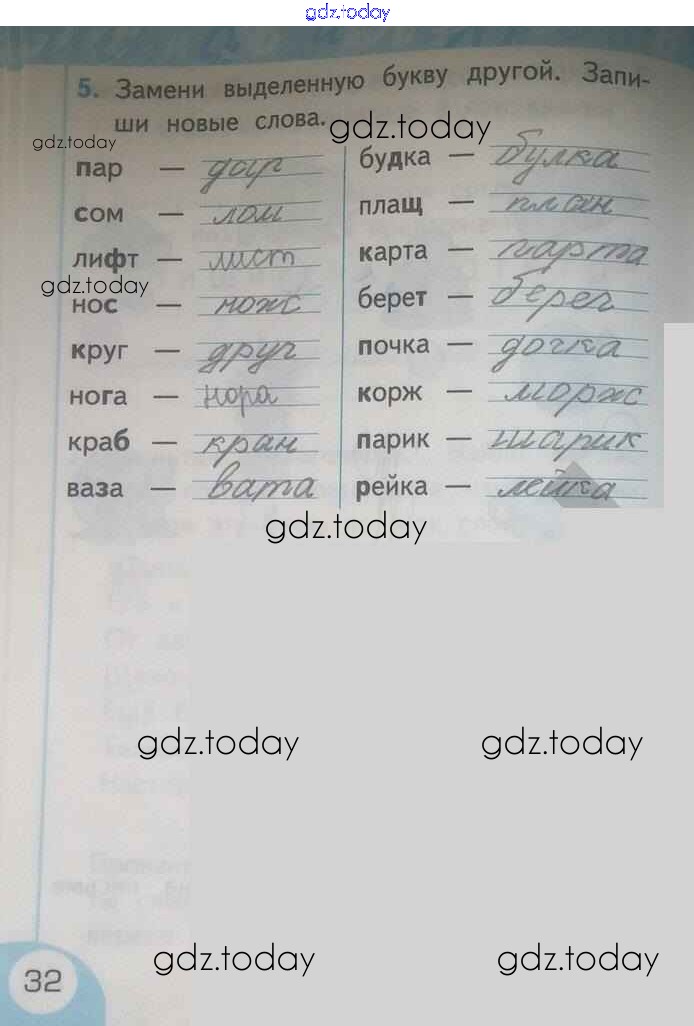 gdz.today
5. Замени выделенную букву другой. Запи-
ши новые слова.
gdz.today
gdz.today
пар — дар
сом — лом
лифт — лист
gdz.today
нос — нож
круг — друг
нога — нора
краб — кран
ваза — вата
будка — булка
плащ — план
карта — парта
берет — берег
почка — дочка
корж — морж
парик — шарик
рейка — лейка
gdz.today
gdz.today
gdz.today
gdz.today
gdz.today
32